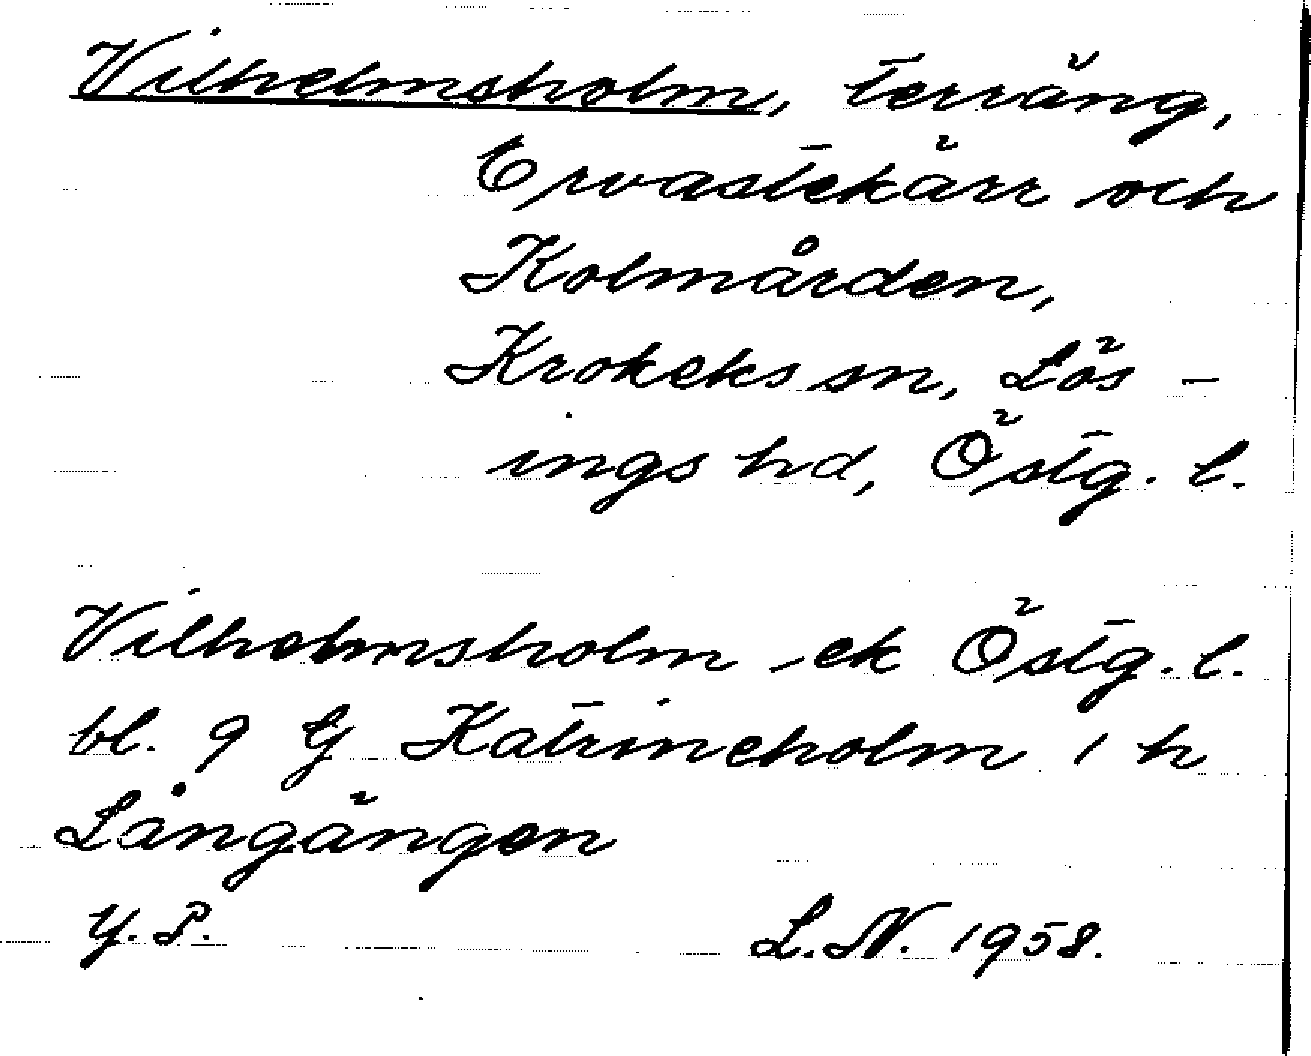 Vilhelmsholm, terräng,
Ervastekärr och
Kolmården,
Krokeks sn, Lös-
ings hd, Östg. l.
Vilhelmsholm ek Östg. l.
bl. 9 G Katrineholm 1 h
Långängen
Y. P.
L. N. 1958.